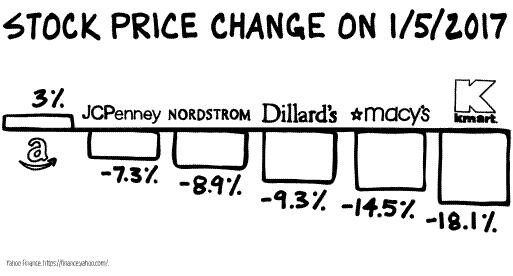 STOCK PRICE CHANGE ON 1/5/2017
3%
JCPenney NORDSTROM Dillard's macy's kmart
a
-7.3%
-8.9%
-9.3%
-14.5%
-18.1%
Yahoo Finance. https://finance.yahoo.com/.